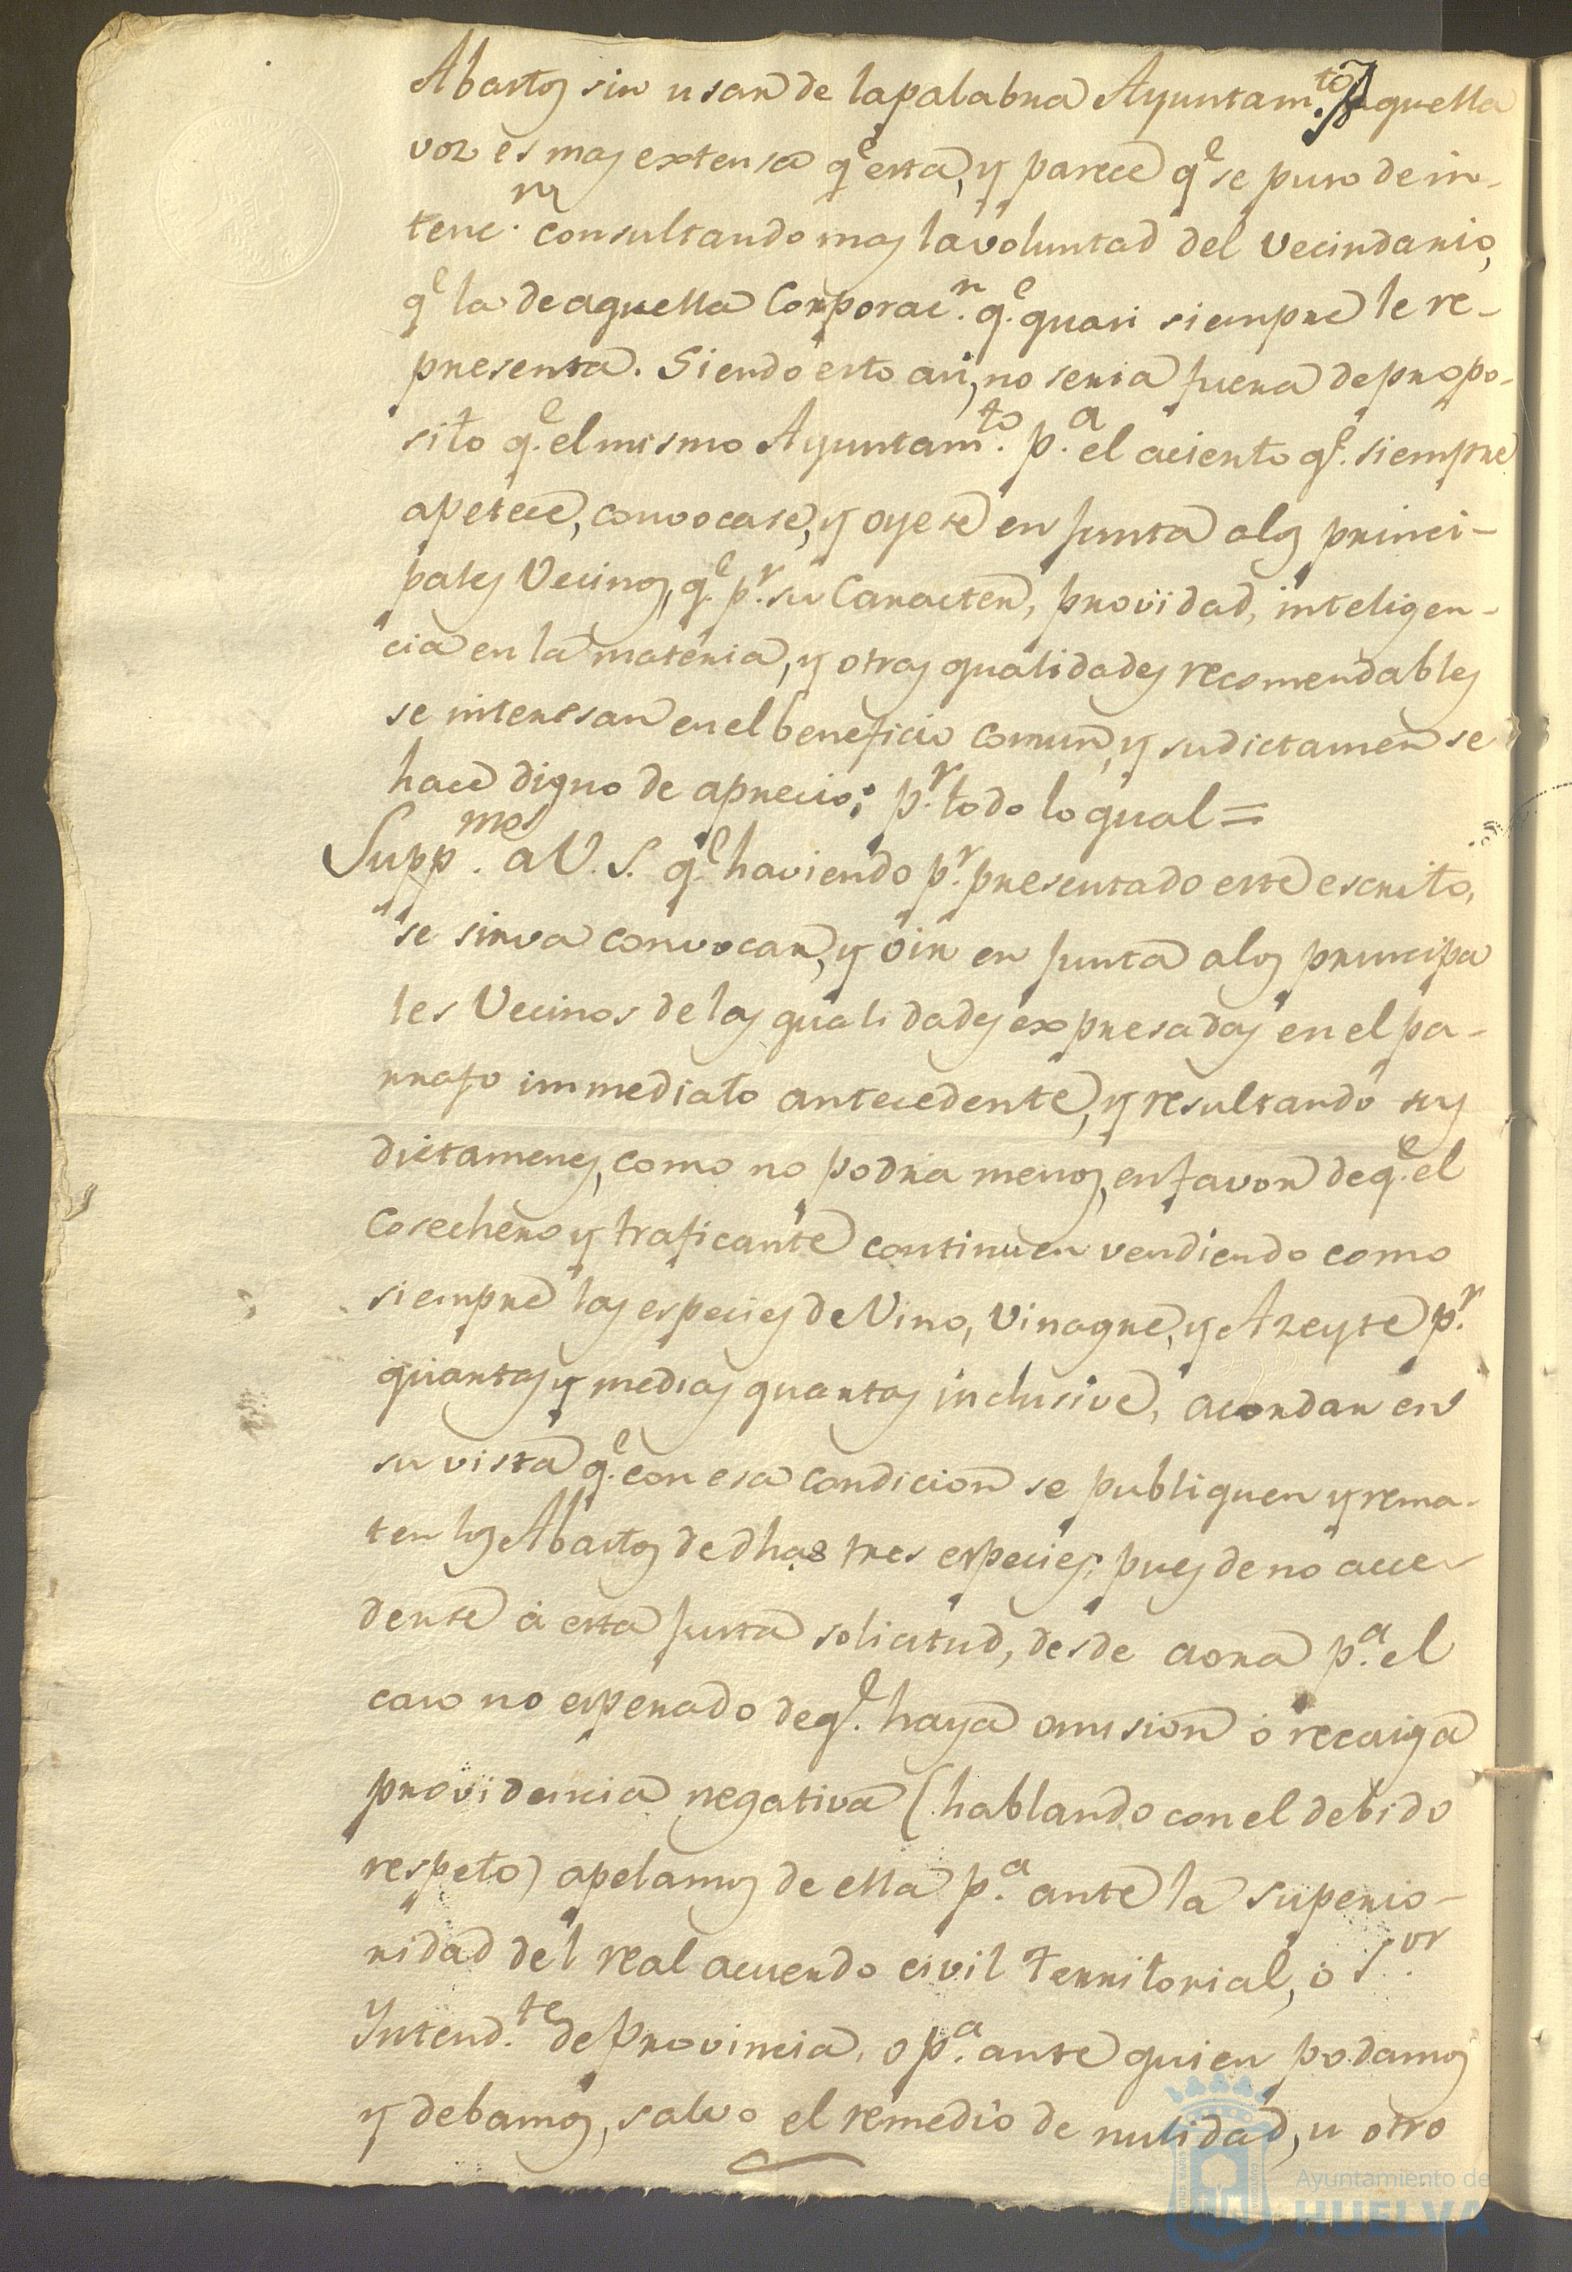 Abastos sin usar de la palabra Ayuntam.to aquella
voz es mas extensa q.e esta, y parece q.e se puso de in-
tenc.n consultando mas la voluntad del Vecindario,
q.e la de aquella Corporac.n q.e quasi siempre le re-
presenta. Siendo esto asi, no seria fuera de propo-
sito q.e el mismo Ayuntam.to p.a el aciento q.e siempre
apetece, convocase, y oyese en Junta a los princi-
pales Vecinos, q.e p.r su Caracter, providad, inteligen-
cia en la materia, y otras qualidades recomendables
se interesan en el beneficio comun, y su dictamen se
hace digno de aprecio; p.r todo lo qual =
Supp.mos a V.S. q.e haviendo p.r presentado este escrito,
se sirva convocar, y oir en Junta a los principa
les Vecinos de las qualidades expresadas en el pa-
rrafo immediato antecedente, y resultando sus
dictamenes, como no podra menos, en favor de q.e el
Cosechero y traficante continuen vendiendo como
siempre las especies de Vino, Vinagre, y Azeyte p.r
quartas y medias quartas inclusive, acordar en
su vista q.e con esa condicion se publiquen y rema-
ten los Abastos de dhas tres especies; pues de no acce-
derse á esta Justa solicitud, desde aora p.a el
caso no esperado de q.e haya omision ó recaiga
providencia negativa (hablando con el debido
respeto) apelamos de ella p.a ante la Superio-
ridad del real acuerdo civil territorial, ó S.or
Yntend.te de Provincia, o p.a ante quien podamos
y debamos, salvo el remedio de nulidad, u otro
Ayuntamiento de
HUELVA